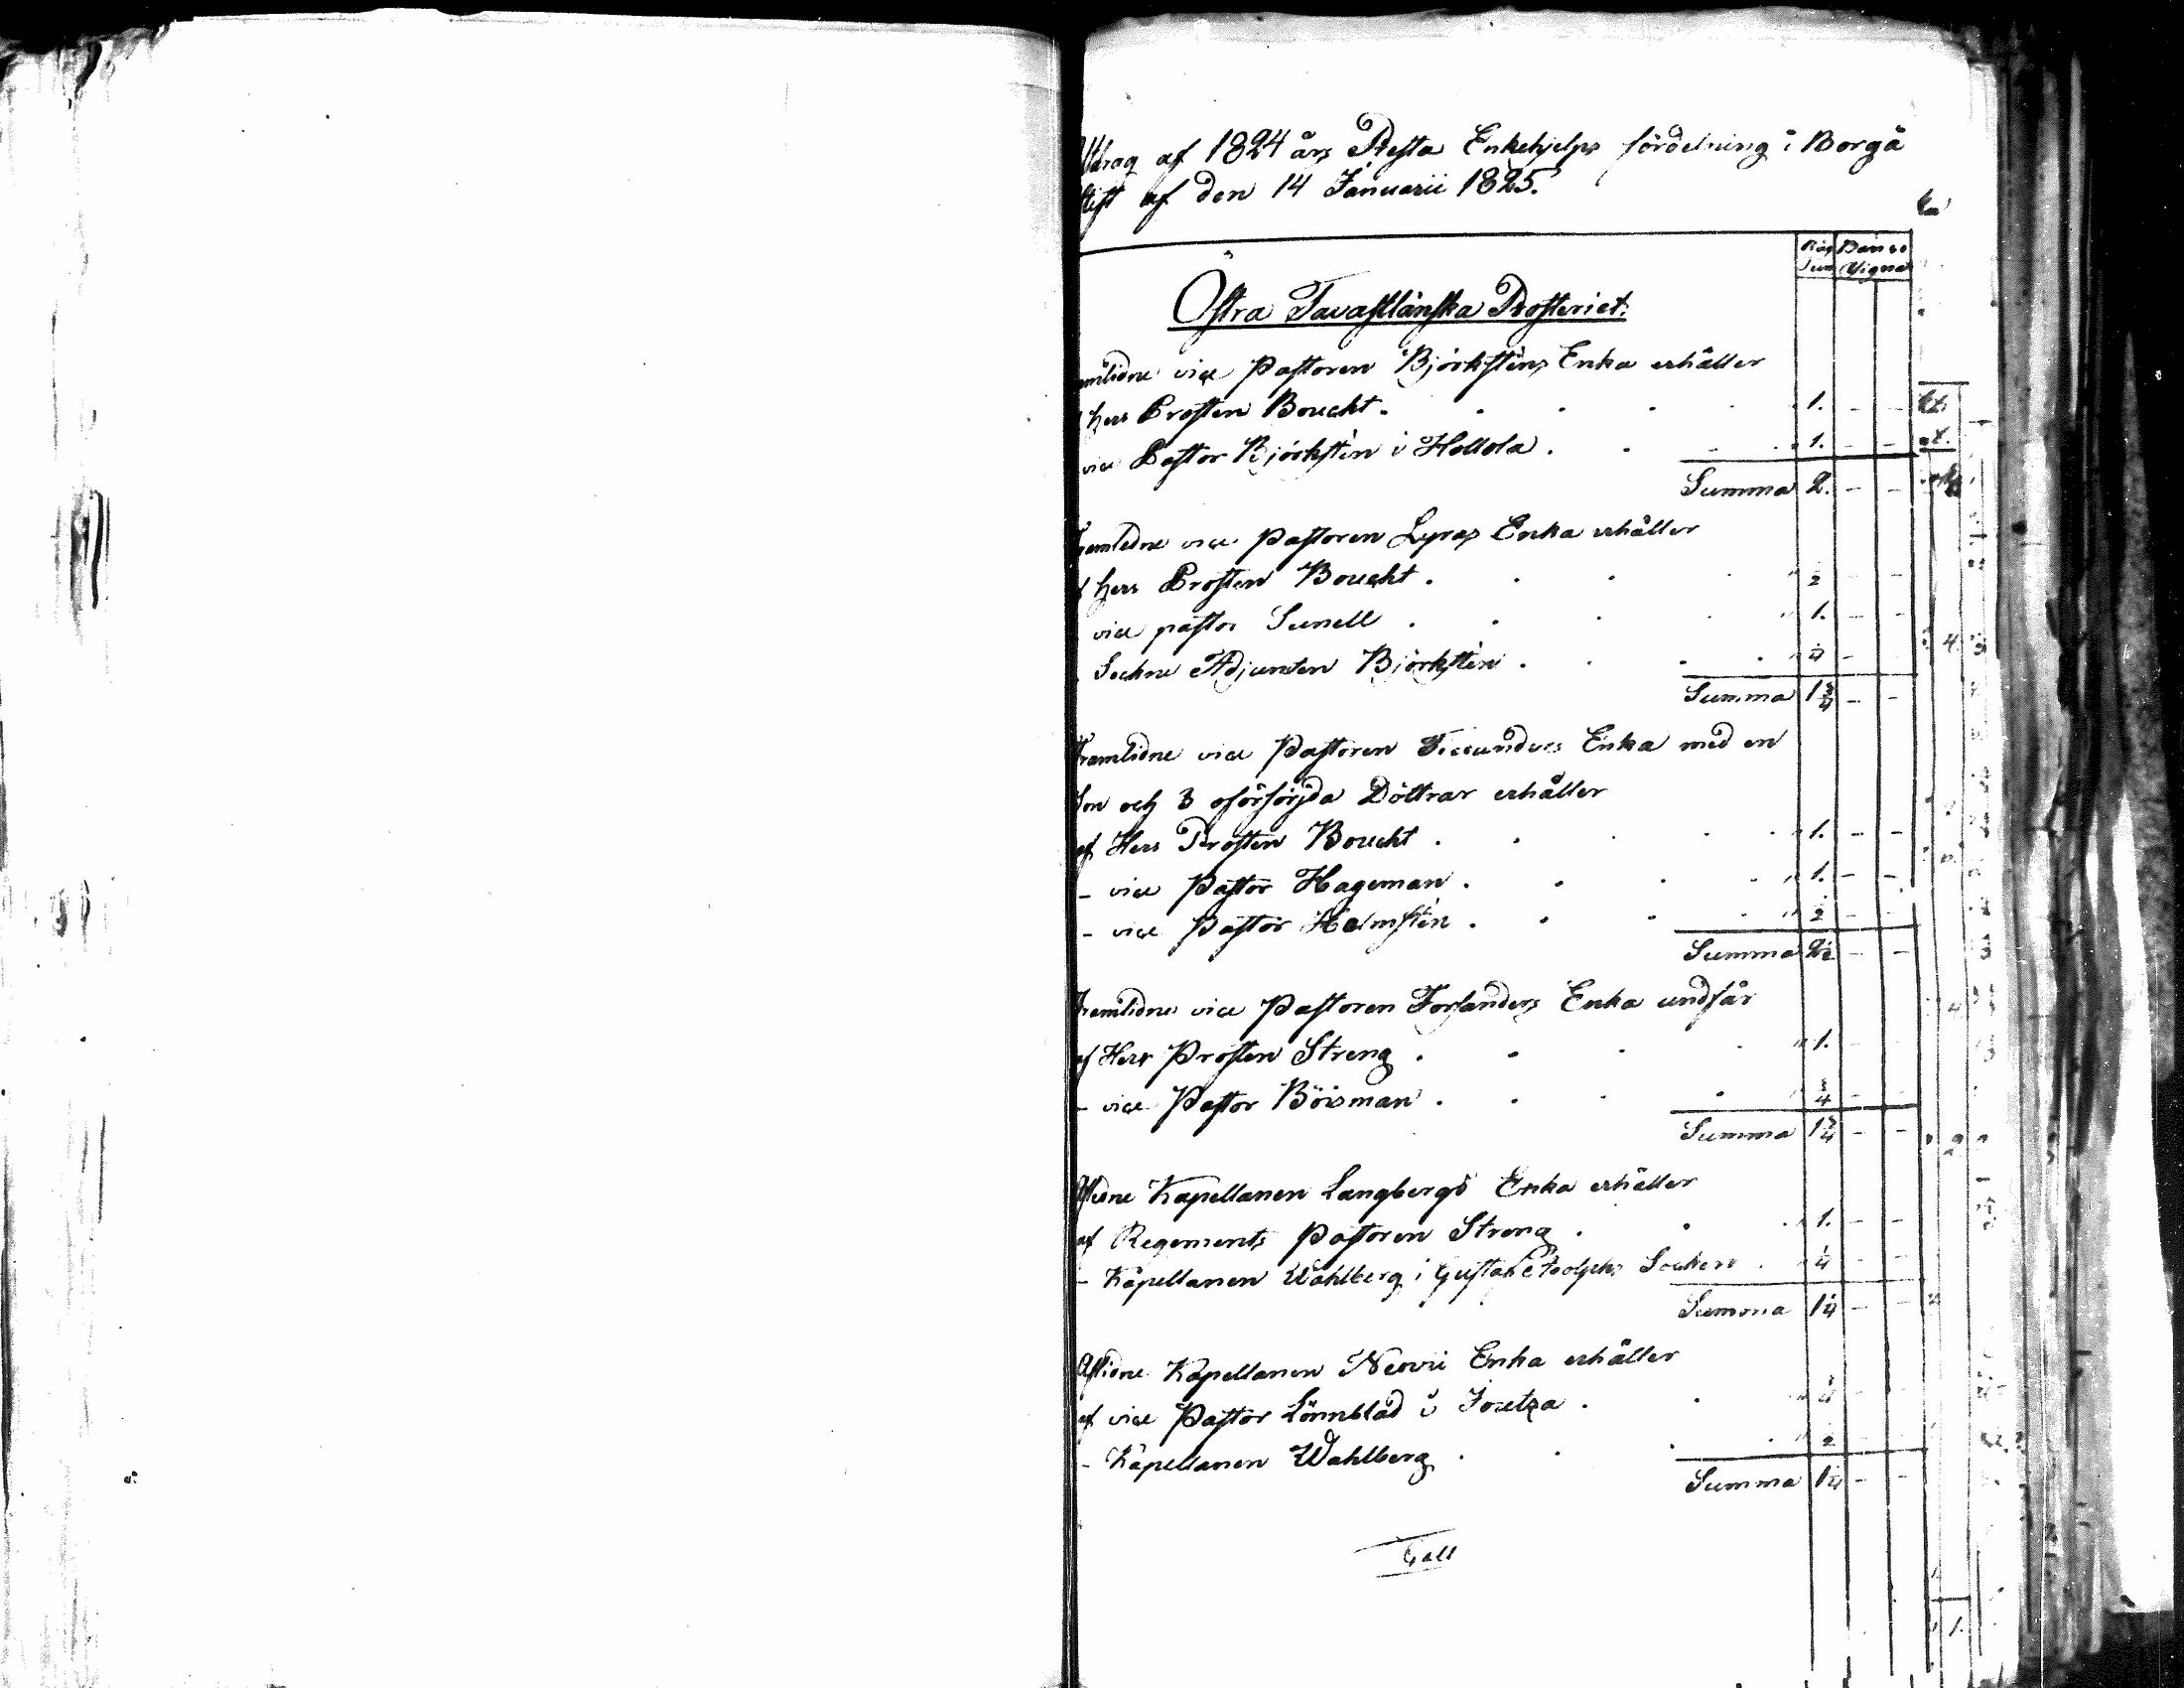 Utdrag af 1824 års Presta Enkehjelps fördelning i Borgå
Stift af den 14 Januarii 1825.
Östra Tavastlänska Prosteriet.
Framlidne vice Pastoren Björksténs Enka erhåller
af Herr Prosten Boucht. 1. - -
vice Pastor Björkstén i Hollola. 1. - -
Summa 2. - -
Framledne vice Pastoren Lyras Enka erhåller
af Herr Prosten Boucht. ½ - -
vice pastor Sunell. 1. - -
Sockne Adjuncten Björkstén. ¼ -
Summa 1¾ - -
Framlidne vice Pastoren Enka med en
Son och 3 oförsörjda Döttrar erhåller
af Herr Prosten Boucht. 1. - -
- vice Pastor Hageman. 1. - -
- vice Pastor Holmstén. ½ - -
Summa 2½ - -
Framlidne vice Pastoren Forsanders Enka undfår
af Herr Prosten Streng. 1. - -
- vice Pastor Böisman. ¾ - -
Summa 1¾ - -
Aflidne Kapellanen Langbergs Enka erhåller
af Regements Pastoren Streng. 1. - -
- Kapellanen Wahlberg i Gustaf Adolphs Socken. ¼ - -
Summa 1¼ - -
Aflidne Kapellanen Neovii Enka erhåller
af vice Pastor Lönnblad i Joutza. ¾ - -
- Kapellanen Wahlberg. ½ - -
Summa 1¼ - -